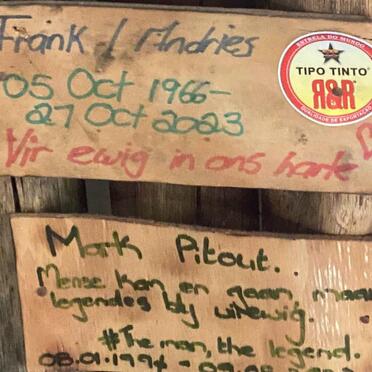 Frank / Andries
05 Oct 1966-
27 Oct 2023
Vir ewig in ons harte
ESTRELA DO MUNDO
TIPO TINTO
R&R
QUALIDADE DE EXPORTAÇÃO
Mark Pitout.
Mense kom en gaan, maar
legendes bly vir ewig.
#The man, the legend.
08.01.1994 -